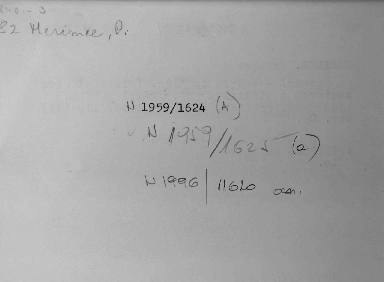 82 Merimee, P.
N 1959/1624 (A)
N 1959/1625 (a)
N 1996